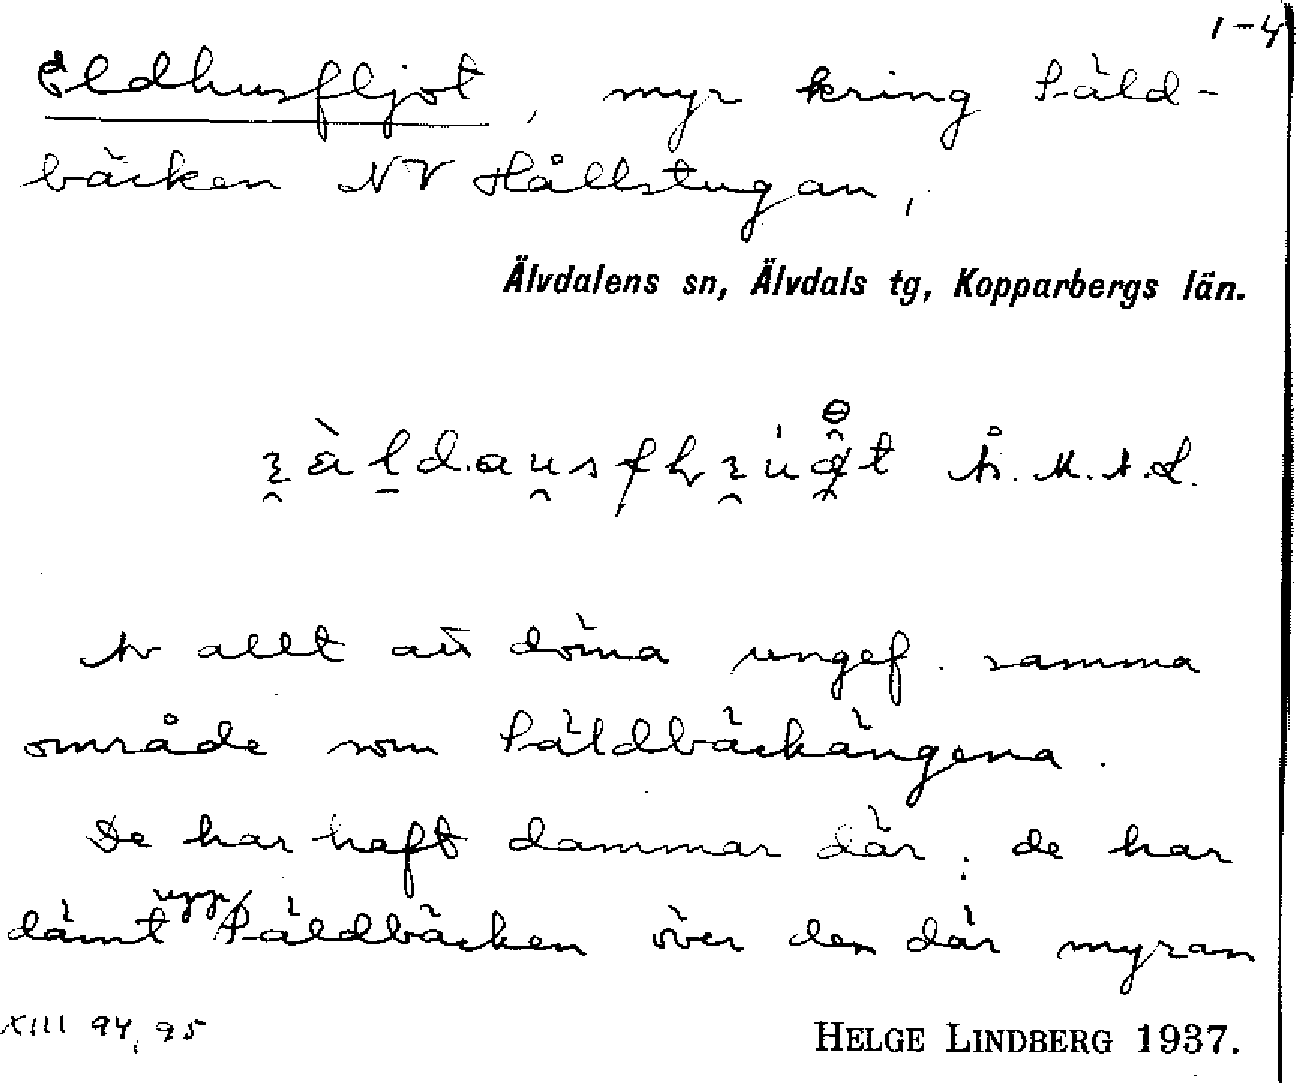 1-4
Eldhusfljot, myr kring Päld-
bäcken NV Hållstugan,
Älvdalens sn, Älvdals tg, Kopparbergs län.
Av allt att döma ungef. samma
område som Päldbäckängena.
De har haft dammar där: de har
dämt upp Päldbäcken över den där myran
XIII 94, 95
HELGE LINDBERG 1937.